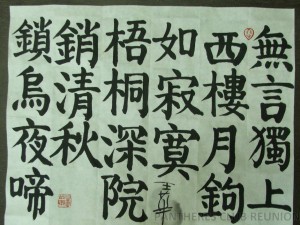 無言獨上
西樓月鉤
如寂寞
梧桐深院
銷清秋
鎖烏夜啼
CLUB REUNION